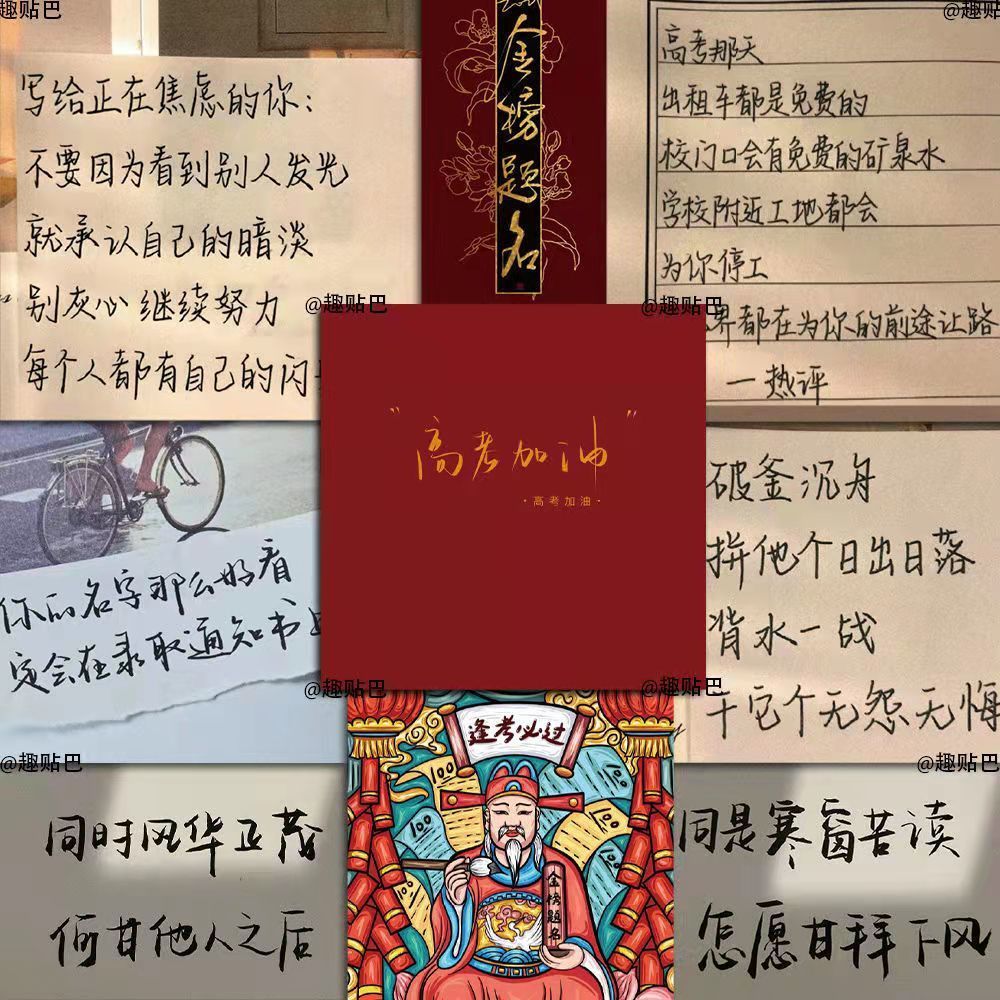 趣贴巴
@趣贴
写给正在焦虑的你：
不要因为看到别人发光
就承认自己的暗淡
别灰心 继续努力
每个人都有自己的闪
金榜题名
高考那天
出租车都是免费的
校门口会有免费的矿泉水
学校附近工地都会
为你停工
界都在为你的前途让路
一热评
@趣贴巴
@趣贴巴
"高考加油"
·高考加油·
你的名字那么好看
定会在录取通知书
破釜沉舟
拼他个日出日落
背水一战
干它个无怨无悔
@趣贴巴
@趣贴巴
逢考必过
100
100
100
100
金榜题名
@趣贴巴
@趣贴巴
同时风华正茂
何甘他人之后
同是寒窗苦读
怎愿甘拜下风